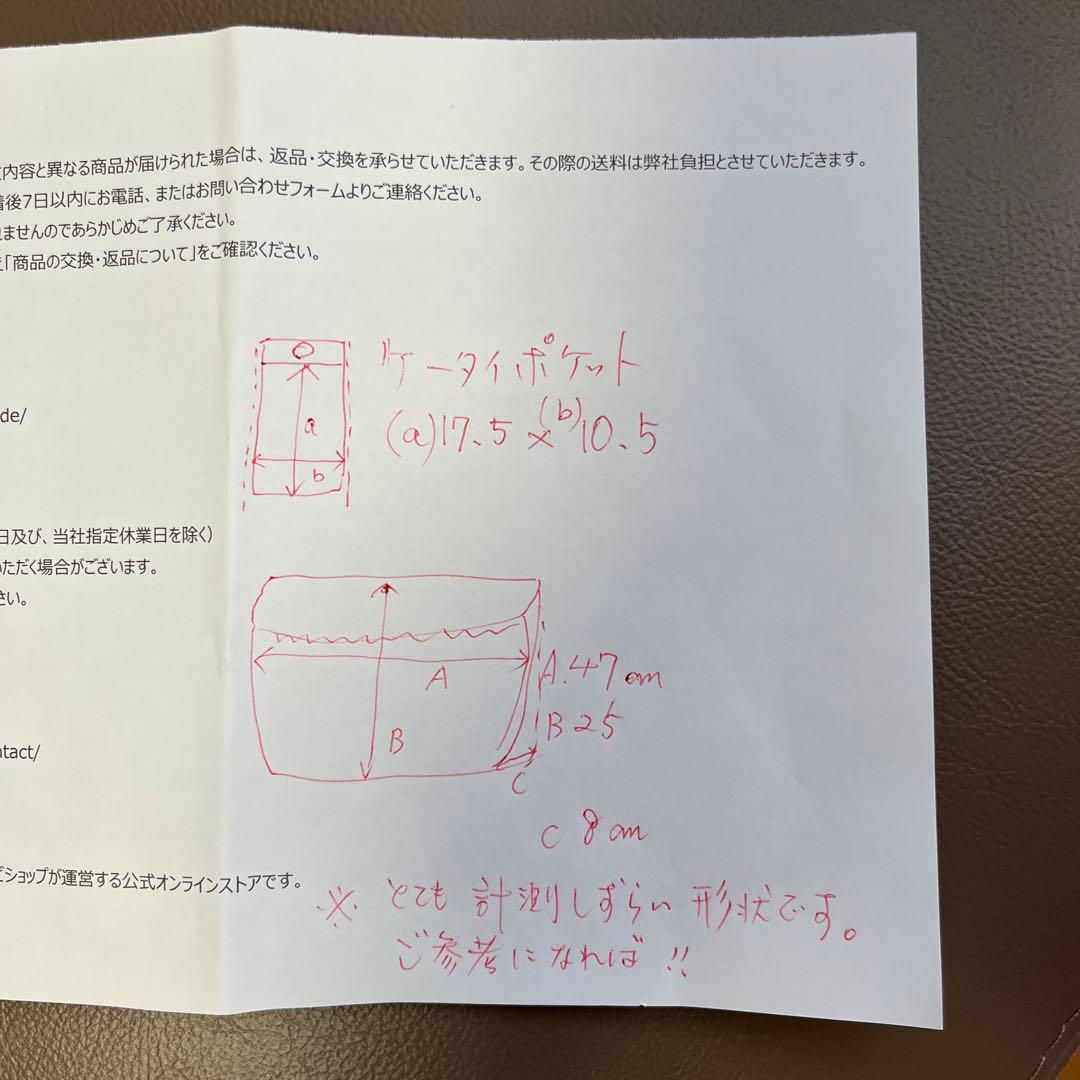 内容と異なる商品が届けられた場合は、返品・交換を承らせていただきます。その際の送料は弊社負担とさせていただきます。
後7日以内にお電話、またはお問い合わせフォームよりご連絡ください。
ませんのであらかじめご了承ください。
「商品の交換・返品について」をご確認ください。
ケータイポケット
(a)17.5×(b)10.5
a
b
de/
日及び、当社指定休業日を除く)
いただく場合がございます。
さい。
A
A.47cm
B
B25
C
ntact/
C 8cm
ショップが運営する公式オンラインストアです。
※ とても計測しずらい形状です。
ご参考になれば!!